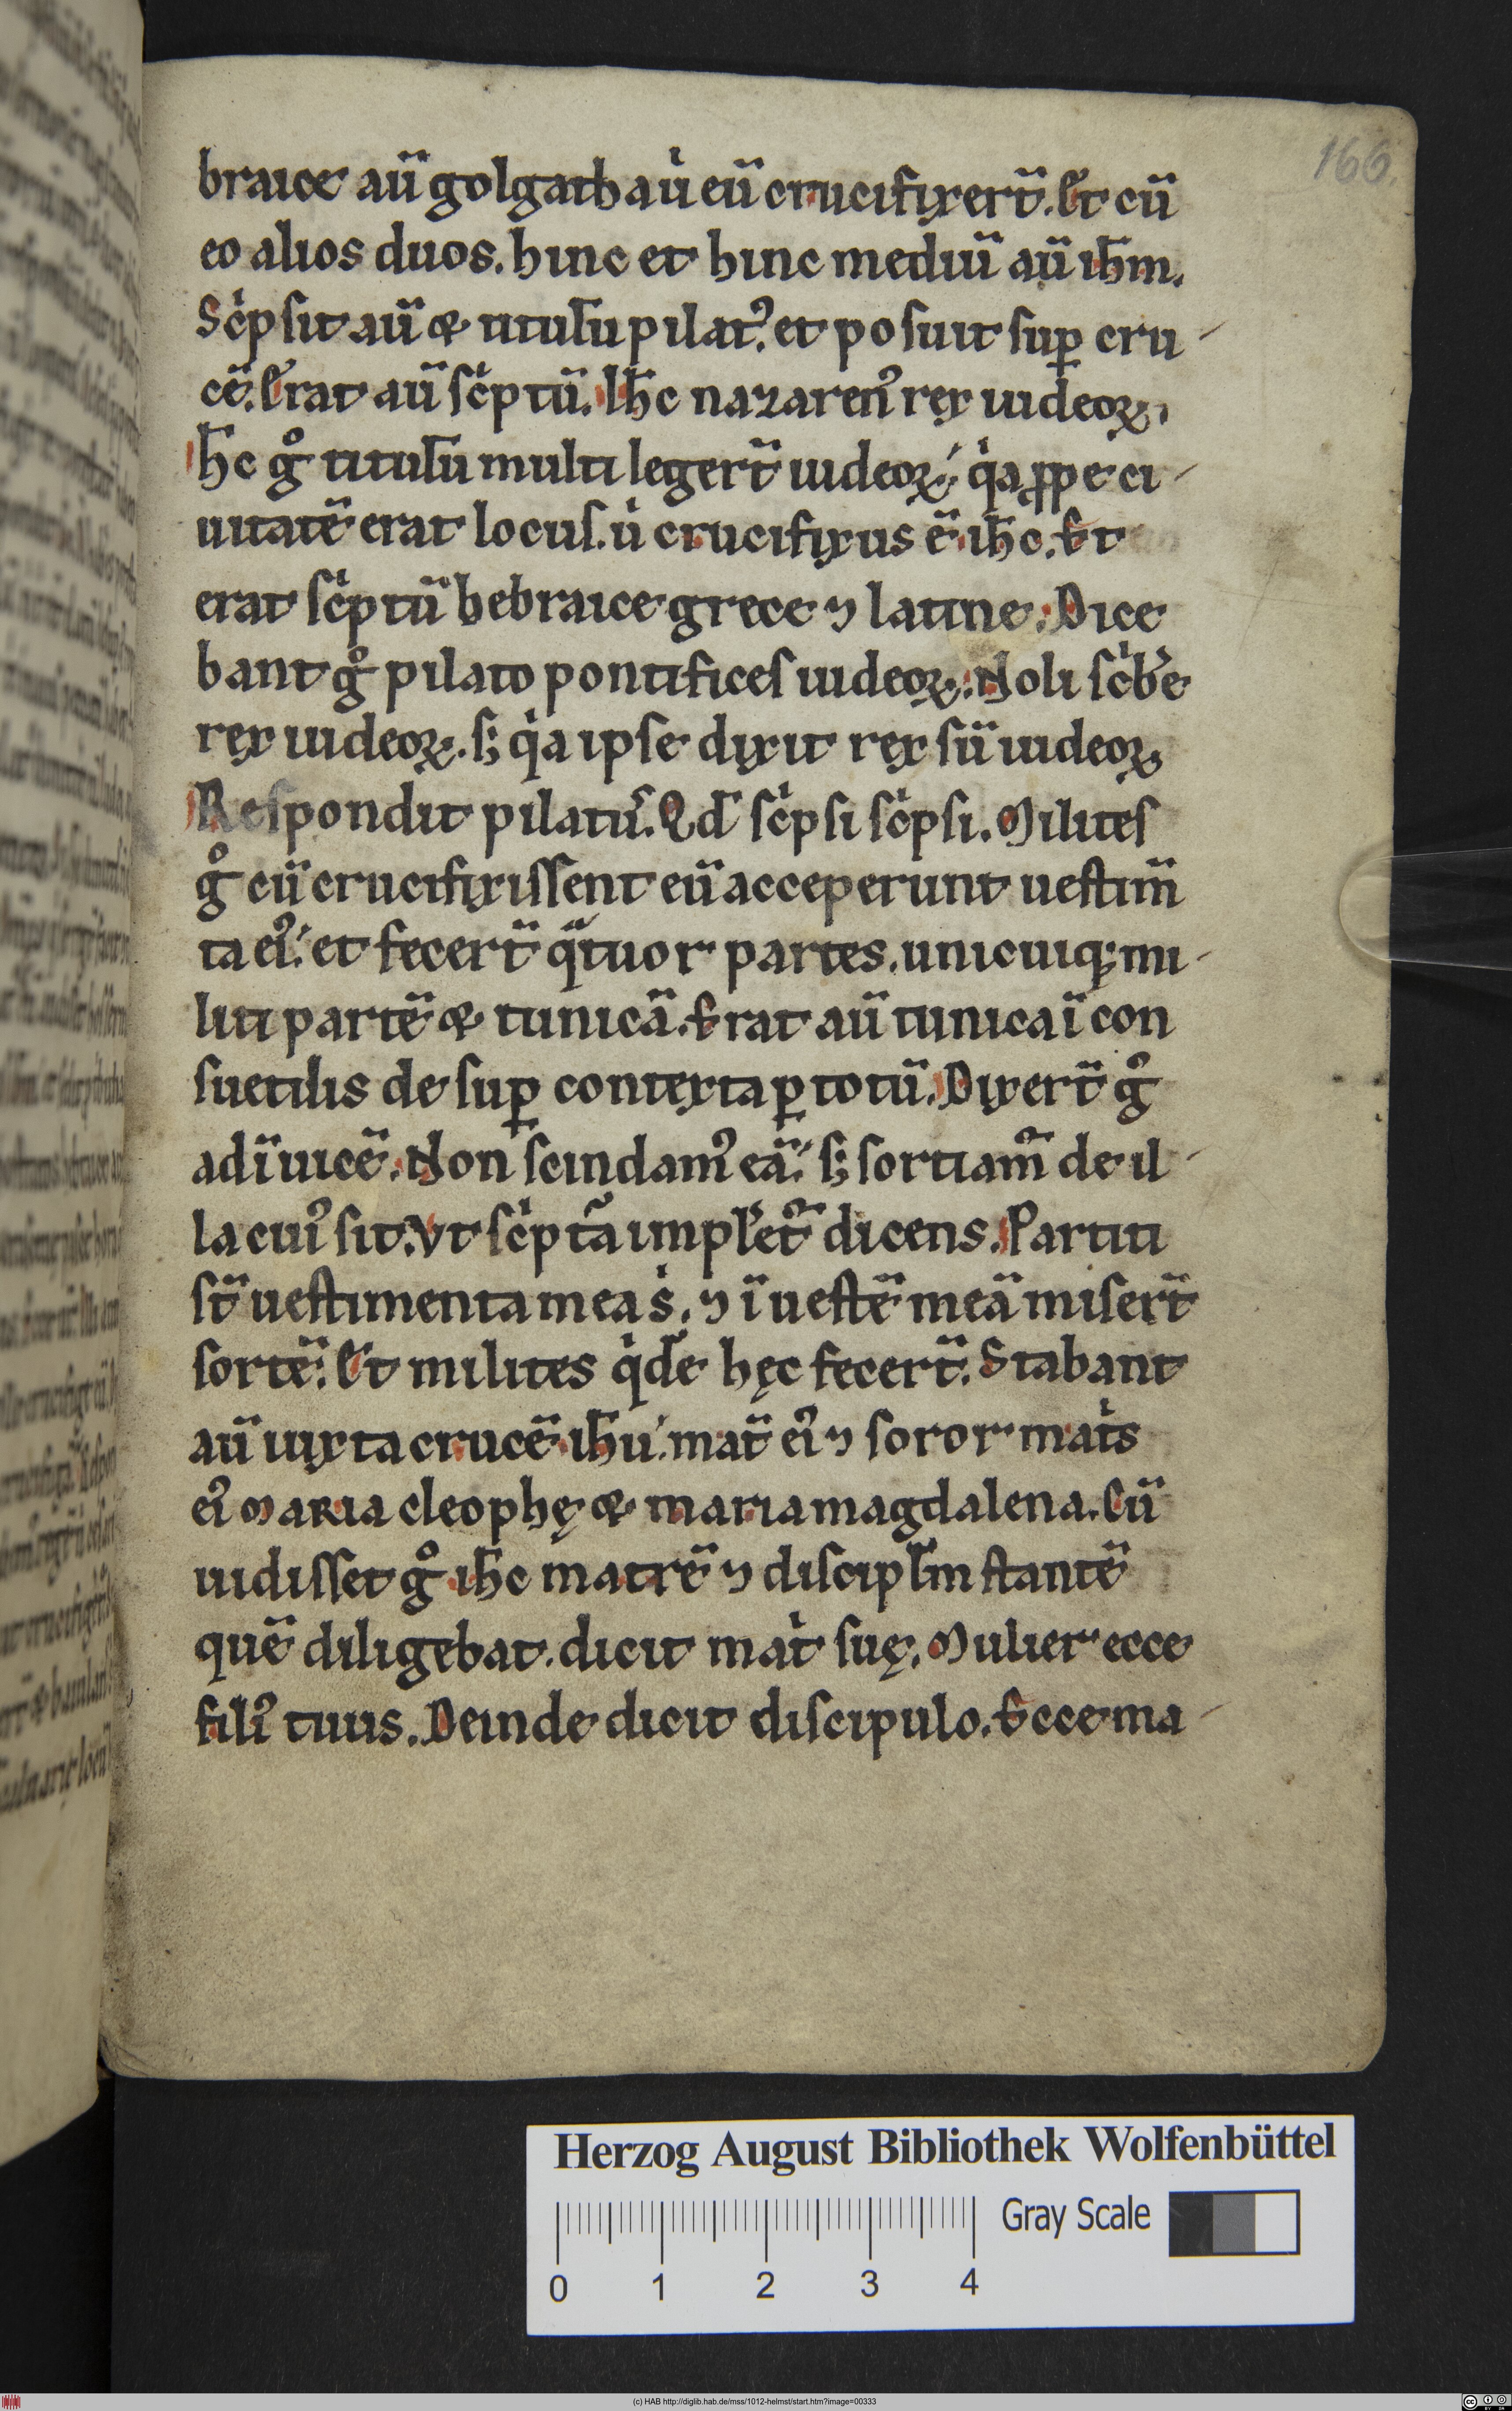 166.
braice aū golgatha u̇ eū crucifixer̄t. Et cū
eo alios duos. hinc et hinc mediū aū ih̄m.
Sc̍psit aū & titul̄u pilat᾿. et posuit sup̱ cru-
cē. Erat aū sc̍ptū. Ih̄c nazaren᾿ rex iudeoꝝ.
h̄c gͦ titul̄u multi leger̄t iudeoꝝ. q̍a ꝓpe ci-
uitatē erat locus. u̇ crucifixus ē ih̄c. Et
erat sc̍ptū hebraice grece ⁊ latine. Dice
bant gͦ pilato pontifices iudeoꝝ. Noli sc̍b᾿e
rex iudeoꝝ. sꝫ q̍a ipse dixit rex sū iudeoꝝ
Respondit pilatus. Qd̄ sc̍psi sc̍psi. Milites
gͦ cū crucifixissent eū acceperunt uestim̄
ta ei᾿. et fecer̄t qᵃtuor partes. unicuiqꝫ mi-
liti partē & tunicā. Erat aū tunica ī con
suetilis de sup̱ contexta ꝑ totū. Dixer̄t g᾿
ad īuicē. Non scindam᾿ eā. sꝫ sortiam̄ de il-
la cui᾿ sit. Vt sc̍pt̄a impl᾿et᷑ dicens. Partiti
st̄ uestimenta mea s̍. ⁊ ī uestē meā miser̄t
sortē. Et milites q̍dē hęc fecer̄t. Stabant
aū iuxta crucē ih̄u. mat̄ ei᾿ ⁊ soror mat̍s
ei᾿ MARIA cleophę & maria magdalena. Cū
uidisset gͦ ih̄c matrē ⁊ discipl̄m stantē
quē diligebat. dicit mat̍ suę. Mulier ecce
fili᾿ tuus. Deinde dicit discipulo. Ecce ma-
Herzog August Bibliothek Wolfenbüttel
Gray Scale
0 1 2 3 4
(c) HAB http://diglib.hab.de/mss/1012-helmst/start.htm?image=00333